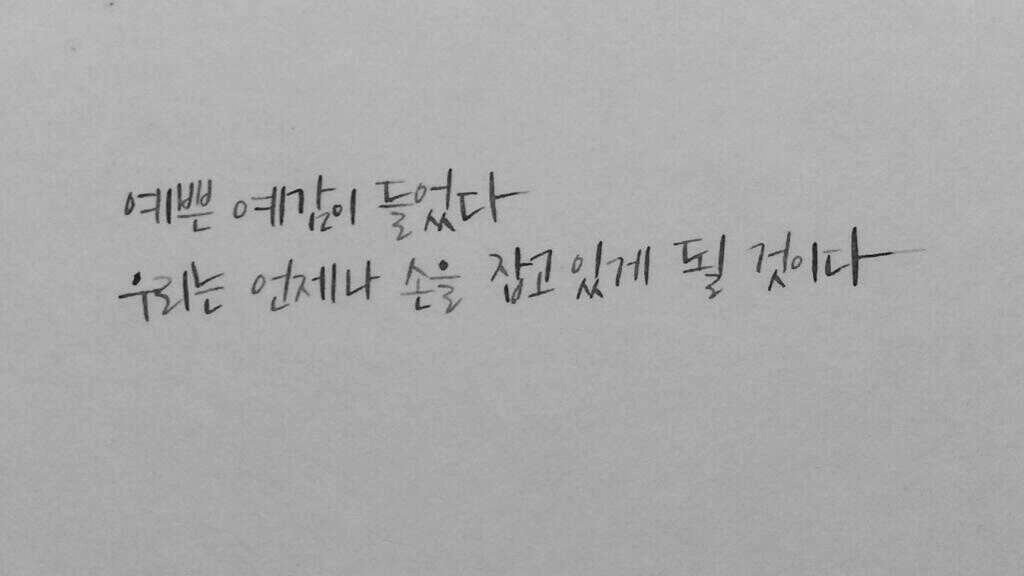 예쁜 예감이 들었다
우리는 언제나 손을 잡고 있게 될 것이다